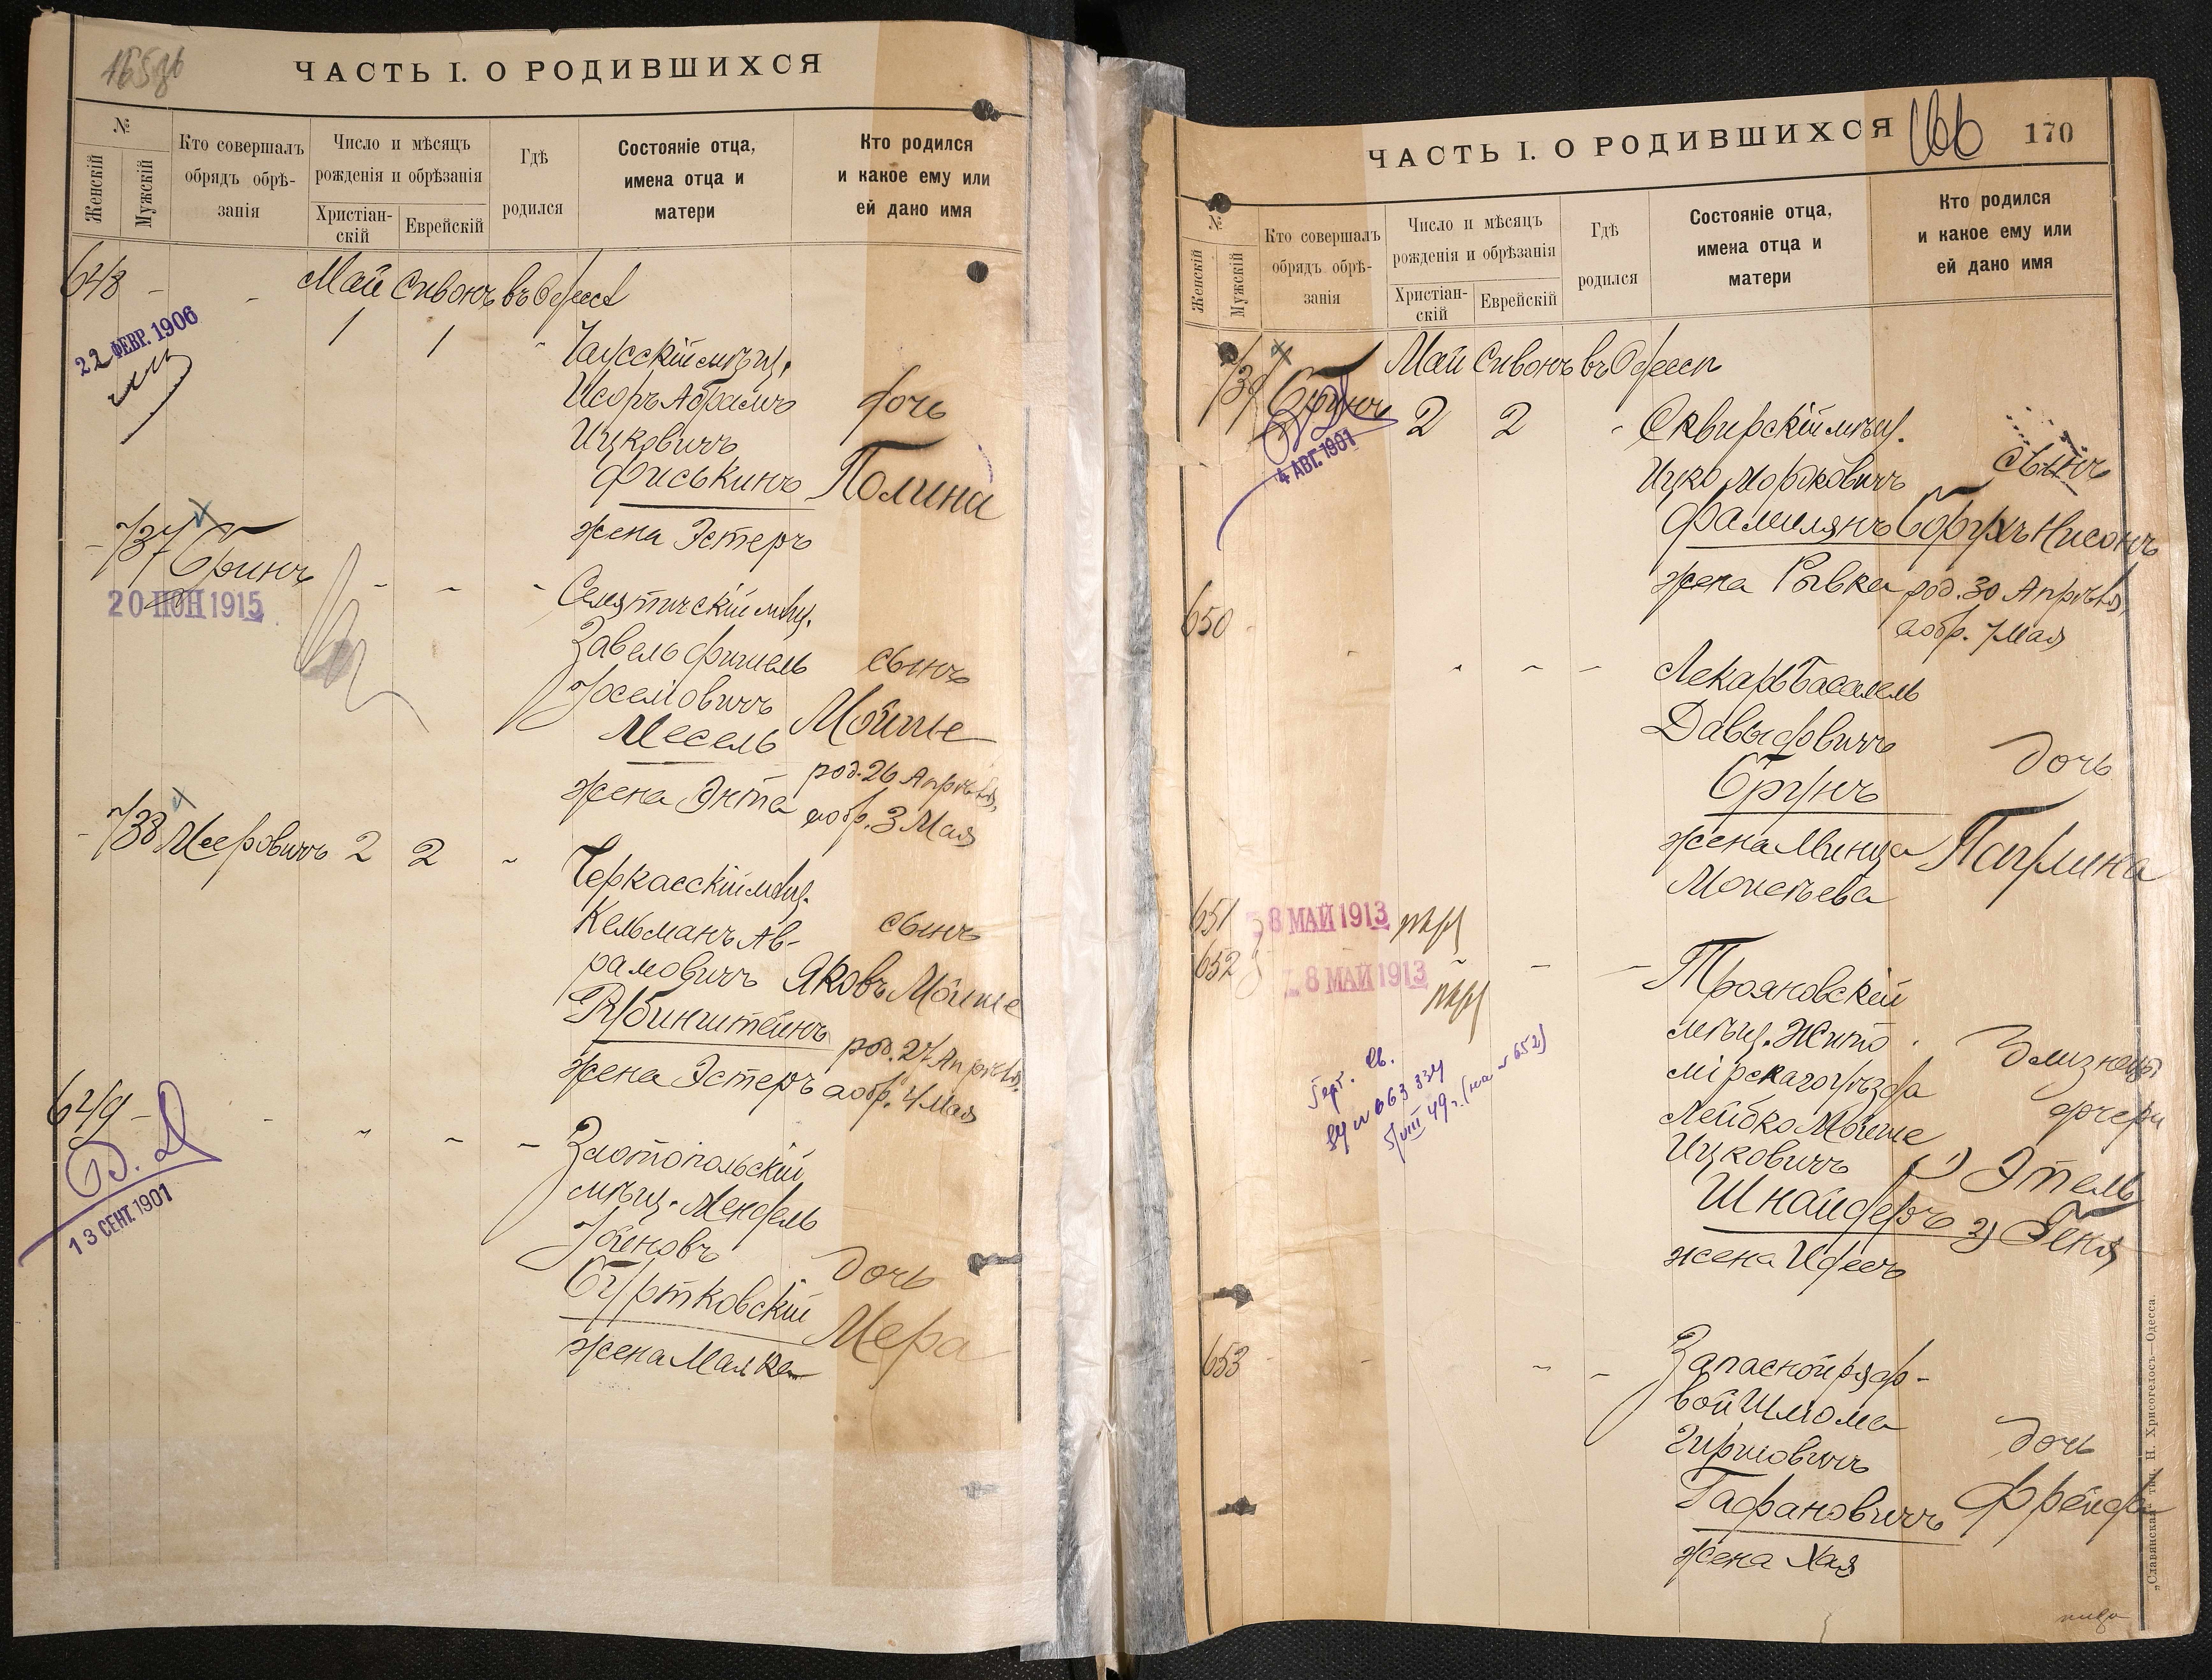 ЧАСТЬ I. О РОДИВШИХСЯ
№
Женскій
Мужскій
Кто совершалъ
обрядъ обрѣ-
занія
Число и мѣсяцъ
рожденія и обрѣзанія
Христіан-
скій
Еврейскій
Гдѣ
родился
Состояніе отца,
имена отца и
матери
Кто родился
и какое ему или
ей дано имя
648 - - Май Сивонъ въ Одессѣ
22 ФЕВР. 1906
1 1 - Чаусскій мѣщ.
Исоръ Абрамъ дочь
Ицковичъ
Фиськинъ Полина
жена Эстеръ
- 737 Бринъ - - -
20 ІЮН 1915
Семятичскій мѣщ.
Завель Фишель сынъ
Іоселіовичъ Мойше
Месель
род. 26 Апрѣля,
жена Энта а обр. 3 Мая
- 738 Мееровичъ 2 2 -
Черкасскій мѣщ.
Кельманъ Ав- сынъ
рамовичъ Яковъ Мойше
Рубинштейнъ
род. 27 Апрѣля,
жена Эстеръ а обр. 4 Мая
649 - - - - -
13 СЕНТ. 1901
Златопольскій
мѣщ. Мендель
дочь
Буртковскій
Мера
жена Малка
ЧАСТЬ I. О РОДИВШИХСЯ
166 170
№
Женскій
Мужскій
Кто совершалъ
обрядъ обрѣ-
занія
Число и мѣсяцъ
рожденія и обрѣзанія
Христіан-
скій
Еврейскій
Гдѣ
родился
Состояніе отца,
имена отца и
матери
Кто родился
и какое ему или
ей дано имя
739 Бринъ Май Сивонъ въ Одессѣ
4 АВГ. 1901
2 2 - Сквирскій мѣщ.
Ицко Мордковичъ сынъ
Фамилянъ Борухъ Нисонъ
жена Рывка род. 30 Апрѣля,
а обр. 7 Мая
650 - - - - -
Лекарь Басалель
Давыдовичъ дочь
Брунъ
жена Минца Паулина
Моисѣева
651 8 МАЙ 1913
652 8 МАЙ 1913
Трояновскій
мѣщ. Жито
мірскаго уѣзда Близнецы
Лейбко Мойше дчери
Ицковичъ 1) Этель
Шнайдеръ 2) Геня
жена Идесъ
св.
№ 063334
5/VIII 49 г. (на № 652)
653 - - - -
Запасной рядо-
вой Шлома
Гиршовичъ дочь
Гафановичъ Фрейда
жена Хая
„Славянская“ тип. Н. Хрисогелосъ—Одесса.